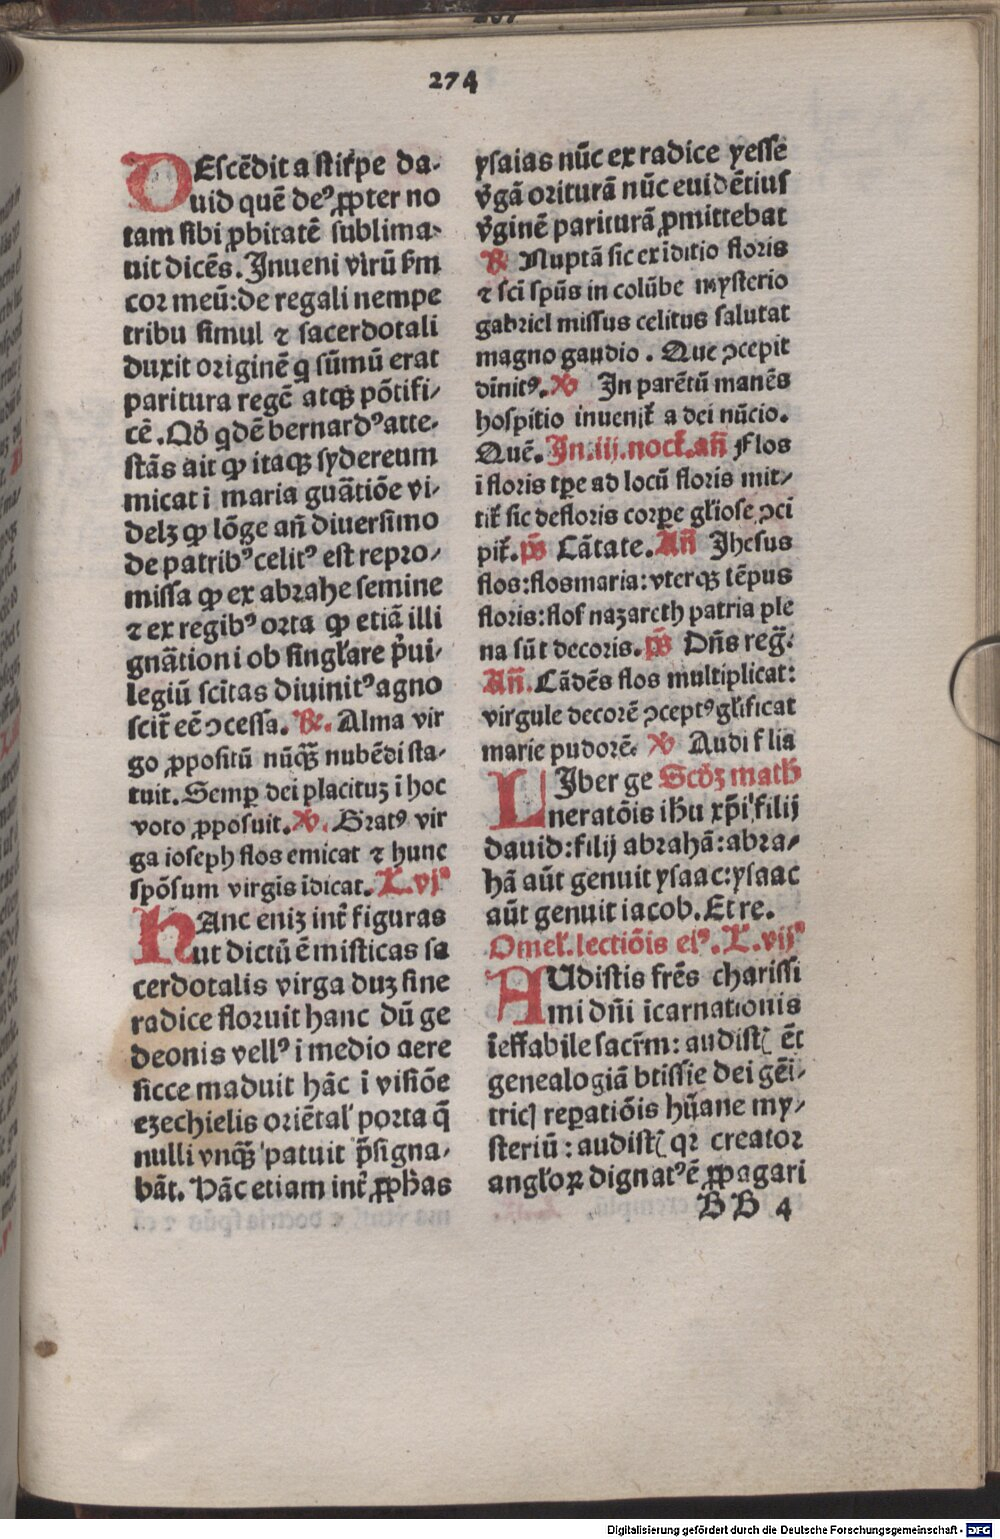 274
DEscēdit a stir̄pe da-
uid quē deꝰ ꝓpter no
tam sibi ꝓbitatē sublima-
uit dicēs. Inueni virū s̄m
cor meū: de regali nempe
tribu simul ⁊ sacerdotali
duxit originē q̄ sūmū erat
paritura regē atqꝫ pōtifi-
cē. Qď qdē bernardꝰ atte-
stās ait ꝙ itaqꝫ sydereum
micat i maria guātiōe vi-
delꝫ ꝙ lōge añ diuersimo
de patribꝰ celitꝰ est repro-
missa ꝙ ex abrahe semine
⁊ ex regibꝰ orta ꝙ etiā illi
gnātioni ob singl̄are p̄ui-
legiū scītas diuinitꝰ agno
scit̄ eē ↄcessa. ℟. Alma vir
go ꝓpositū nūqꝫ̄ nubēdi sta-
tuit. Semꝑ dei placituꝫ ī hoc
voto ꝓposuit. ℣. Gratꝰ vir
ga ioseph flos emicat ⁊ hunc
spōsum virgīs īdicat. L.vj
HAnc eniꝫ int̄ figuras
ut dictū ē misticas sa
cerdotalis virga duꝫ sine
radice floruit hanc dū ge
deonis vellꝰ i medio aere
sicce maduit hāc ī visiōe
ezechielis oriētal̄ porta q̄
nulli vnqꝫ̄ patuit p̄signa-
bāt. Hāc etiam int̄ ꝓph̄as
ysaias nūc ex radice yesse
v̄gā oriturā nūc euidētius
v̄ginē pariturā ꝓmittebat
℟ Nuptā sic ex īditio floris
⁊ scī spūs in colūbe mysterio
gabriel missus celitus salutat
magno gaudio. Que ↄcepit
dīnitꝰ. ℣ In parētū manēs
hospitio inuenit̄ a dei nūcio.
Quē. In.iij.noct̄.añ Flos
ī floris tꝑe ad locū floris mit-
tit̄ sic defloris corꝑe gl̄iose ↄci
pit̄. p̄s Cātate. Añ Jhesus
flos: flos maria: vterqꝫ tēpus
floris: flos nazareth patria ple
na sūt decoris. p̄s Dñs reḡ.
Añ. Cādēs flos multiplicat:
virgule decorē ↄceptꝰ gl̄ificat
marie pudorē. ℣ Audi f̄lia
LIber ge Scďꝫ math̄
neratōis ihu xp̄i filij
dauid: filij abrahā: abra-
hā aūt genuit ysaac: ysaac
aūt genuit iacob. Et re.
Omel̄. lectiōis eiꝰ. L.vij
AUdistis frēs charissi
mi dñi īcarnationis
īeffabile sacr̄m: audistꝭ ēt
genealogiā btissie dei gēi-
tricꝭ reꝑatiōis hūane my-
steriū: audistꝭ qꝛ creator
angl̄oꝝ dignatꝰ ē ꝓpagari
BB 4
Digitalisierung gefördert durch die Deutsche Forschungsgemeinschaft - DFG